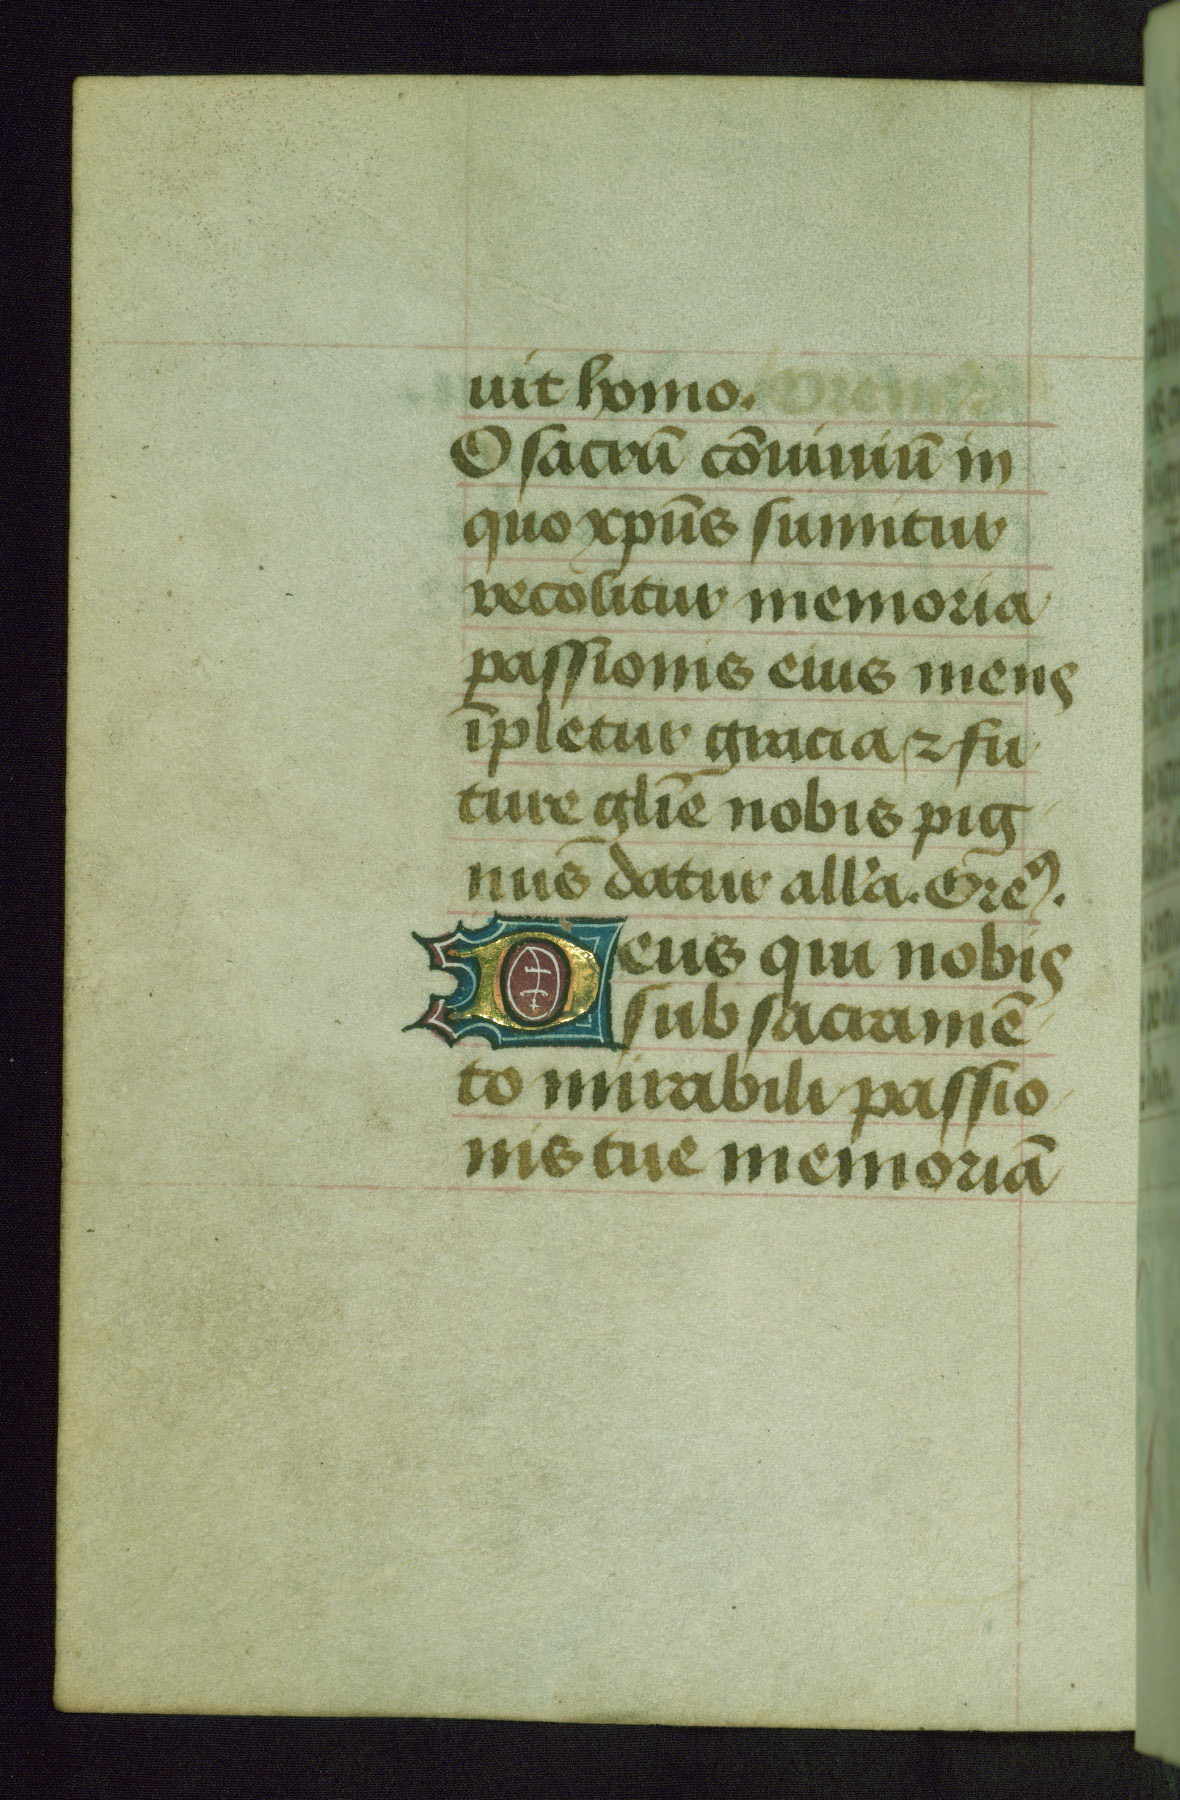 uit homo.
O sacrū cōuiuiū in
quo xpūs sumitur
recolitur memoria
passionis eius mens
īpletur gracia ⁊ fu
ture glīe nobis pig
nus̄ datur all'a. Orēꝰ.
Deus qui nobis
sub sacramē
to mirabili passio
nis tue memoriā